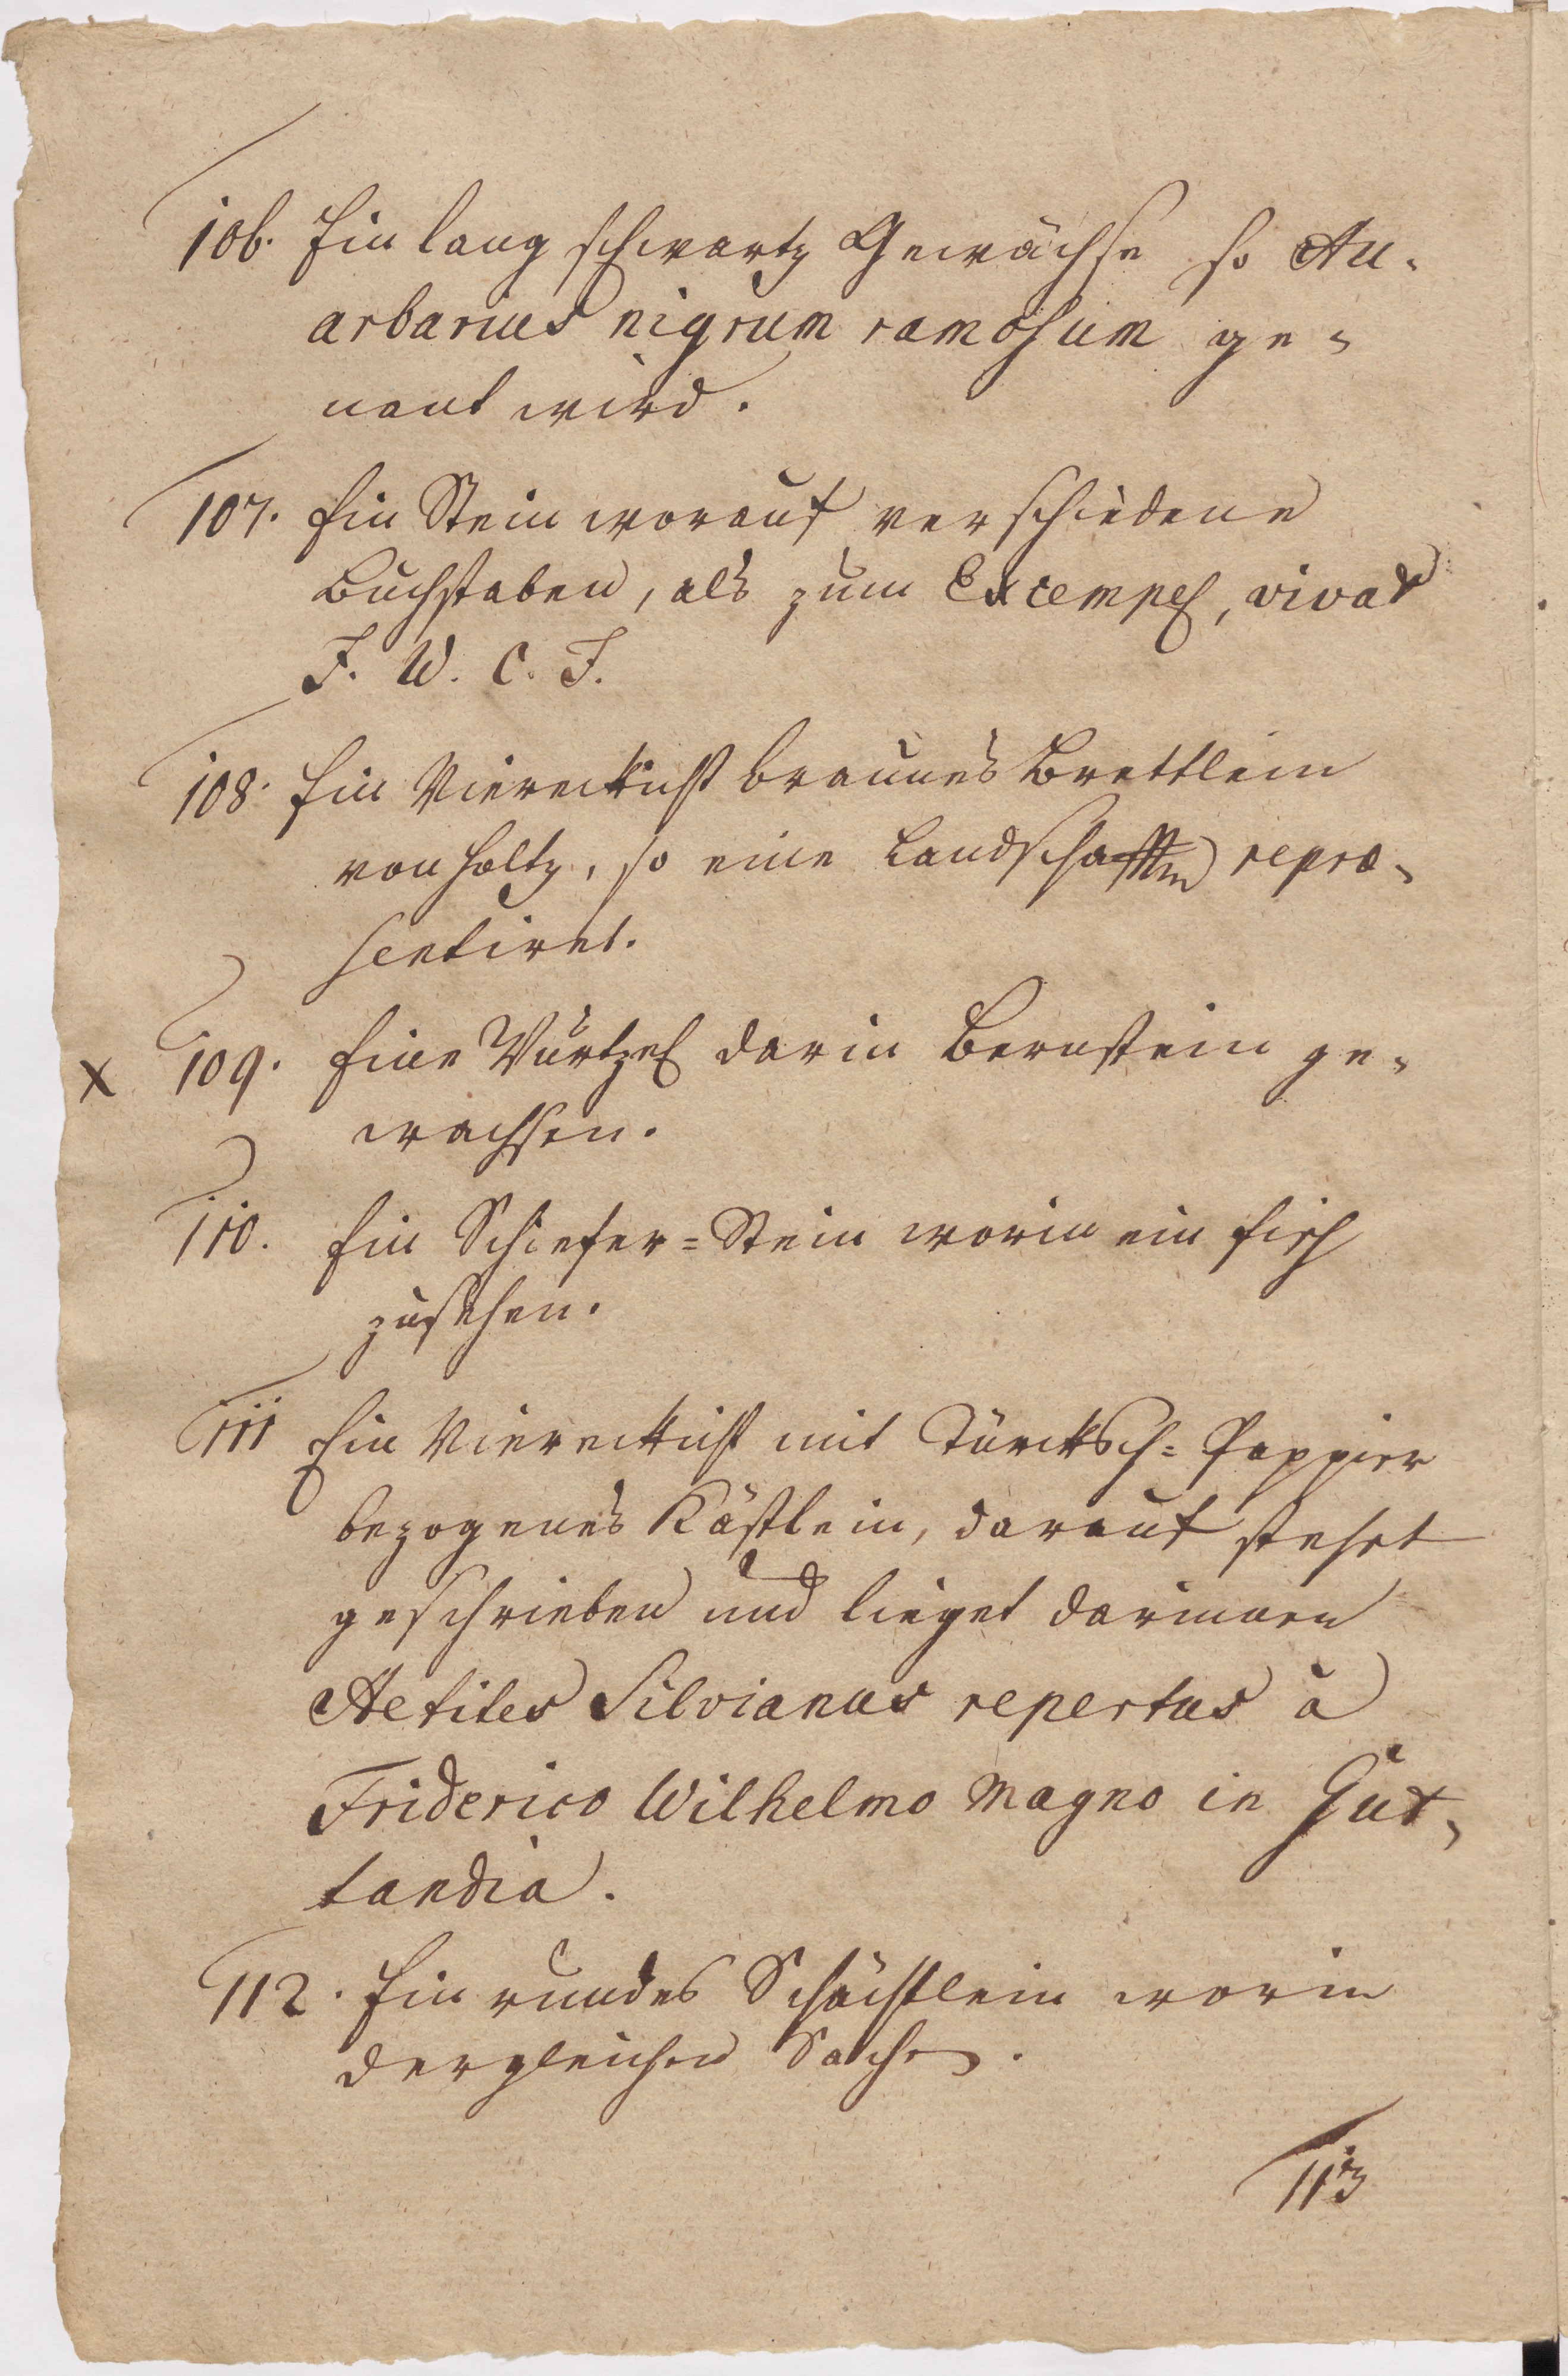 106. Ein lang schwartz Gewächse so Au-
arbarius nigrum ramosum ge-
nant wird.
107. Ein Stein worauf verschiedene
Buchstaben, als zum Exempel, vivat
F. W. C. F.
108. Ein Viereckicht braunes Brettlein
von Holtz, so eine Landschafften repræ-
sentiret.
X 109. Eine Wurtzel darin Bernstein ge-
wachsen.
110. Ein Schiefer-Stein worin ein fisch
zusehen.
111 Ein Viereckicht mit Türcksch-Pappier
bezogenes Kästlein, darauf stehet
geschrieben und lieget darinnen
Aetites Silvianus repertus à
Friderico Wilhelmo Magno in Gut-
landia.
112. Ein rundes Schächtlein worin
dergleichen Sachen.
113